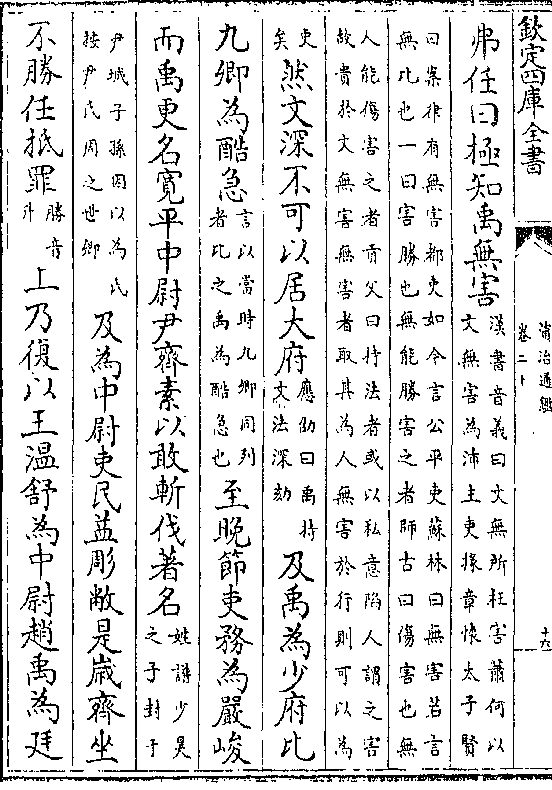 欽定四庫全書
資治通鑑
卷二十
十六
弗任曰極知禹無害
漢書音義曰文無所枉害蕭何以
文無害為沛主吏掾章懷太子賢
曰案律有無害都吏如今言公平吏蘇林曰無害若言
無比也一曰害勝也無能勝害之者師古曰傷害也無
人能傷害之者貢父曰持法者或以私意陷人謂之害
故貴於文無害無害者取其為人無害於行則可以為
吏
矣
然文深不可以居大府
應劭曰禹持
文法深劾
及禹為少府比
九卿為酷急
言以當時九卿同列
者比之禹為酷急也
至晚節吏務為嚴峻
而禹更名寬平中尉尹齊素以敢斬伐著名
姓譜少昊
之子封于
尹城子孫因以為氏
按尹氏周之世卿
及為中尉吏民益彫敝是歳齊坐
不勝任抵罪
勝音
升
上乃復以王溫舒為中尉趙禹為廷